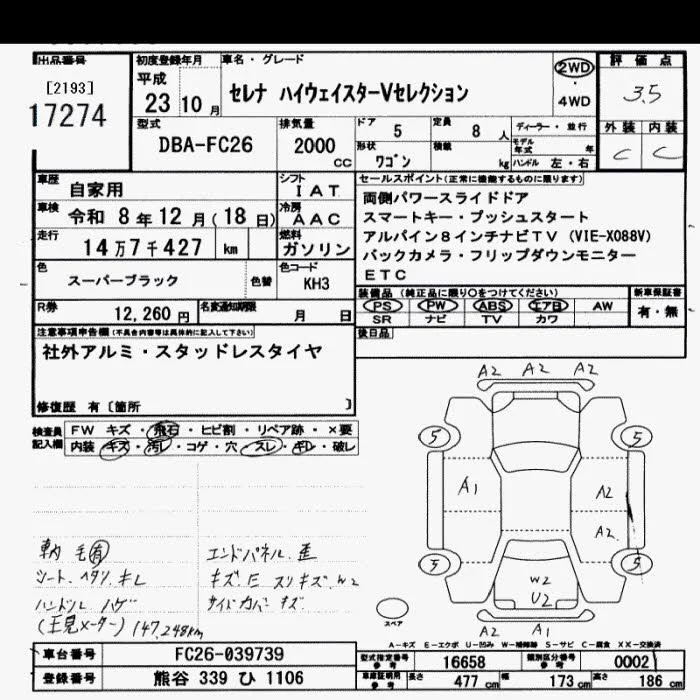 出品番号
[2193]
17274
初度登録年月
平成
23年10月
車名・グレード
セレナ ハイウェイスターVセレクション
2WD
・
4WD
評価点
3.5
外装 内装
C C
型式
DBA-FC26
排気量
2000
cc
ドア 5
定員 8人
ディーラー・並行
形状 ワゴン
積載 kg
モデル年式 年
ハンドル 左・右
車歴
自家用
シフト
IAT
車検 令和 8年12月(18日)
冷房
AAC
走行
14万7千427 km
燃料
ガソリン
色
スーパーブラック
色替
色コード
KH3
R券
12,260円
名変通知期限
月 日
セールスポイント(正常に機能するものに限ります)
両側パワースライドドア
スマートキー・プッシュスタート
アルパイン8インチナビTV (VIE-X088V)
バックカメラ・フリップダウンモニター
ETC
装備品 (純正品に限り○をつけてください)
PS PW ABS エアB AW
SR ナビ TV カワ
新車保証書
有・無
後日品
注意事項申告欄(不具合内容等は具体的に記入して下さい)
社外アルミ・スタッドレスタイヤ
修復歴 有〔箇所 〕
検査員記入欄
FW キズ・飛石・ヒビ割・リペア跡・×要
内装 キズ・汚レ・コゲ・穴・スレ・ギレ・破レ
A2 A2 A2
5 5
A1 A2
A2
5 5
W2
U2
A2 A1
スペア
車内 毛有
シート ヘタリ キレ
ハンドル ハゲ
(王見メーター) 147,248km
エンドパネル 歪
キズ 圧 スリキズ W2
サイドカバー キズ
A-キズ E-エクボ U-凹み W-補修跡 S-サビ C-腐食 XX-交換済
車台番号 FC26-039739
登録番号 熊谷 339 ひ 1106
型式指定番号 参考 16658
類別区分番号 参考 0002
車庫証明用 参考 長さ 477cm 幅 173cm 高さ 186cm